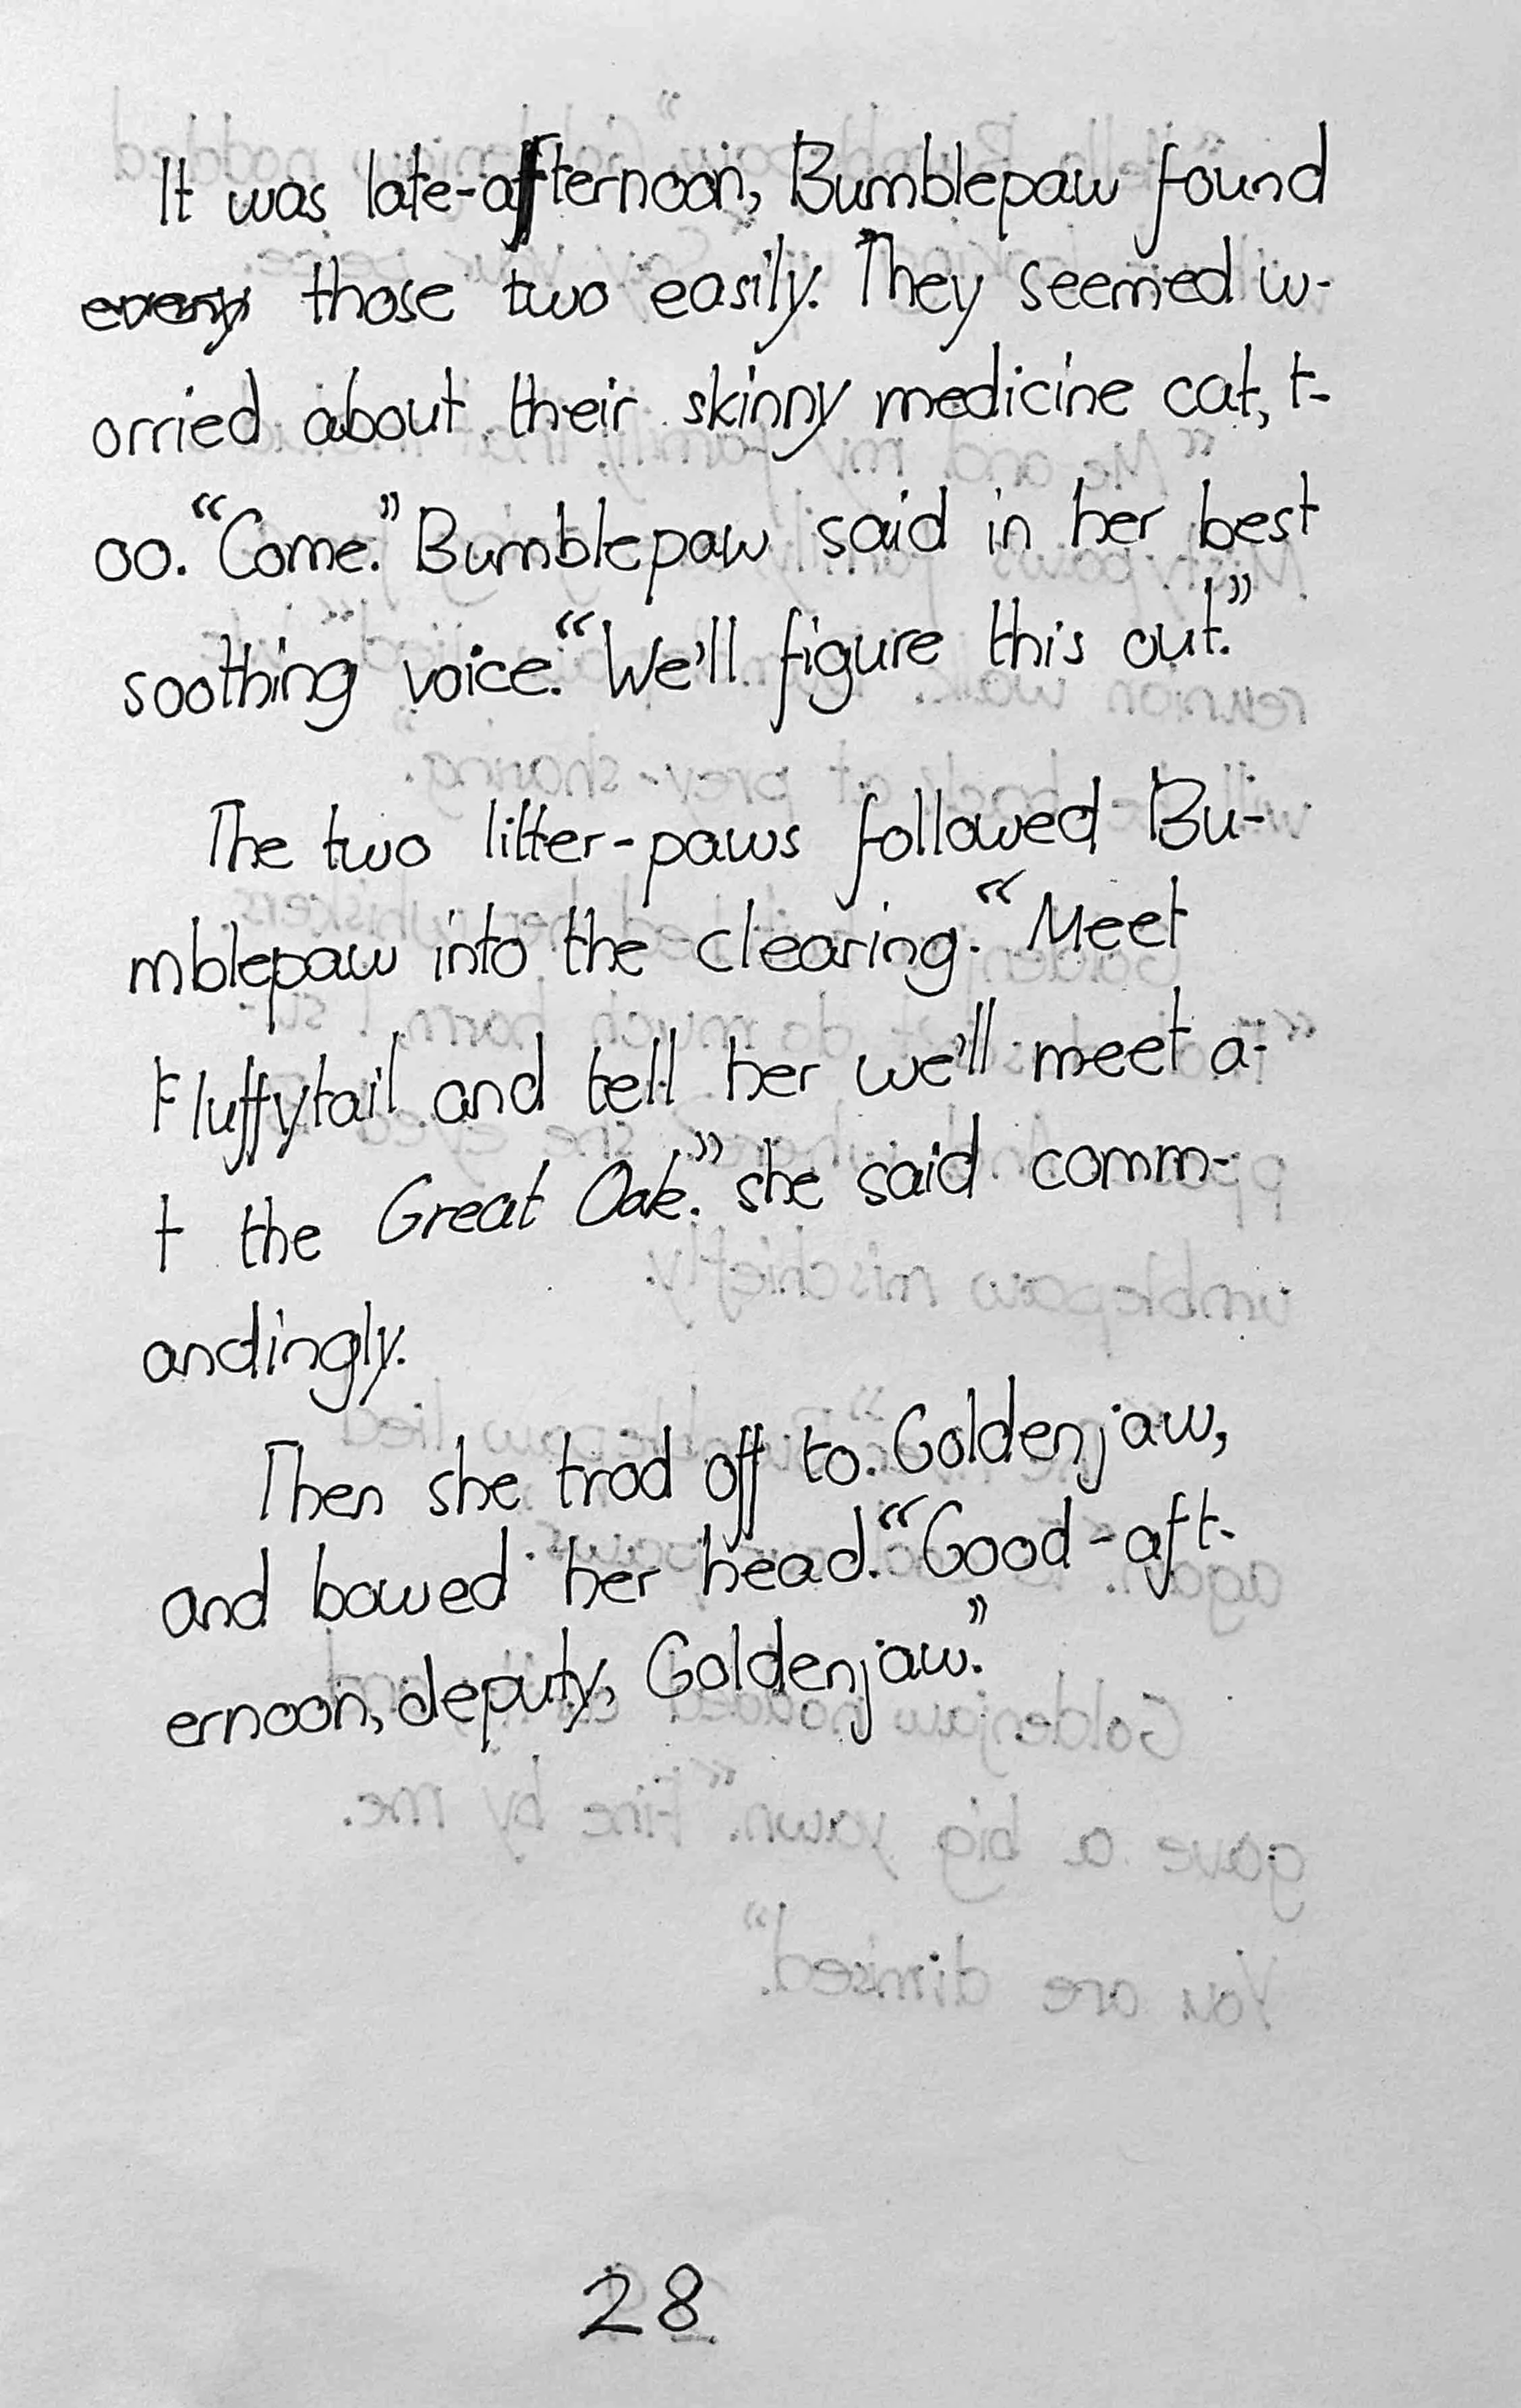 It was late-afternoon, Bumblepaw found
those two easily. They seemed w-
orried about their skinny medicine cat, t-
oo. “Come.” Bumblepaw said in her best
soothing voice. “We'll figure this out.”
The two litter-paws followed Bu-
mblepaw into the clearing. “Meet
Fluffytail and tell her we'll meet a-
t the Great Oak.” she said comm-
andingly.
Then she trod off to. Goldenjaw,
and bowed her head. “Good-aft-
ernoon, deputy, Goldenjaw.”
28